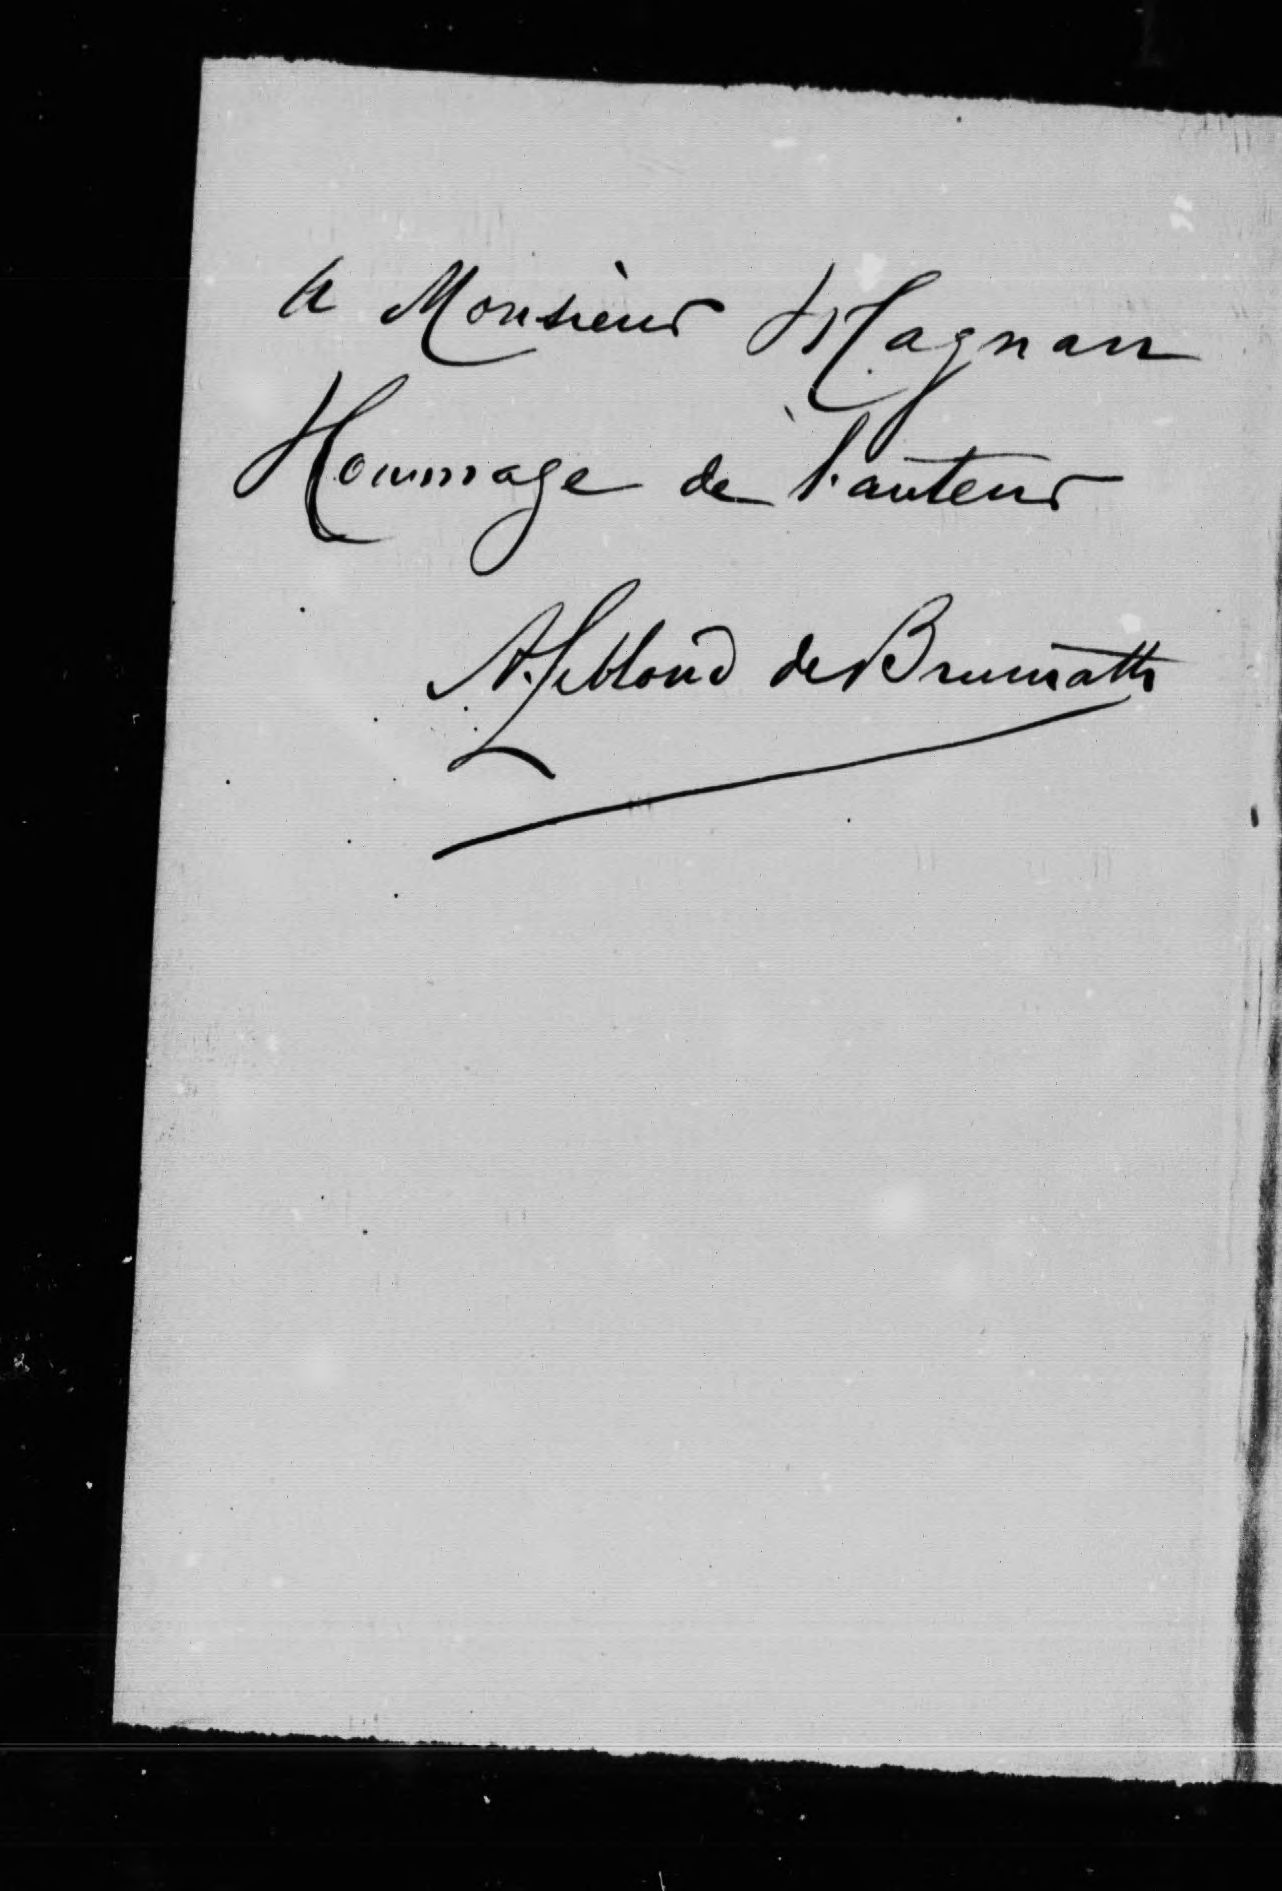 A Monsieur Magnan
Hommage de l'auteur
A. Leblond de Brumath